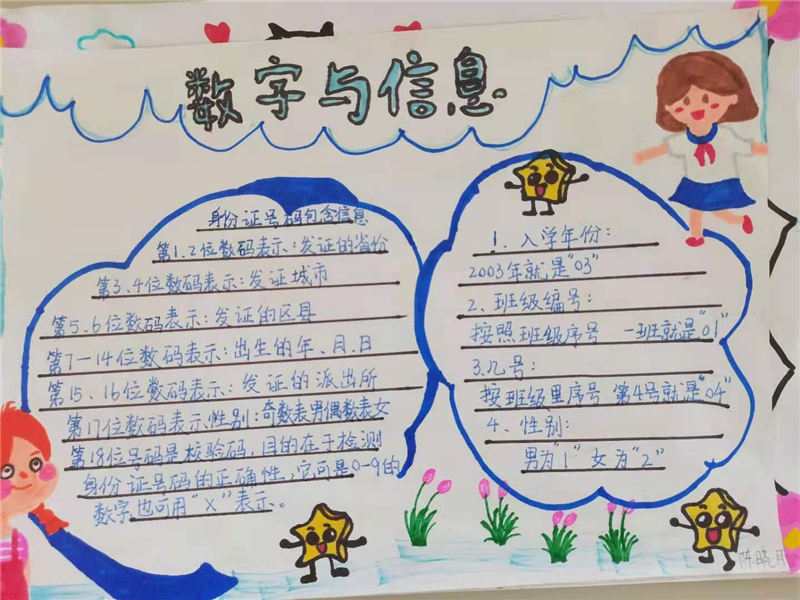 数字与信息
身份证号码包含信息
第1.2位数码表示:发证的省份
第3.4位数码表示:发证城市
第5.6位数码表示:发证的区县
第7—14位数码表示:出生的年、月、日
第15、16位数码表示:发证的派出所
第17位数码表示性别:奇数表男偶数表女
第18位号码是校验码,目的在于检测
身份证号码的正确性,它可是0-9的
数字也可用"X"表示。
1、入学年份:
2003年就是"03"
2、班级编号:
按照班级序号 一班就是"01"
3.几号:
按班级里序号 第4号就是"04"
4、性别:
男为"1" 女为"2"
陈晓月